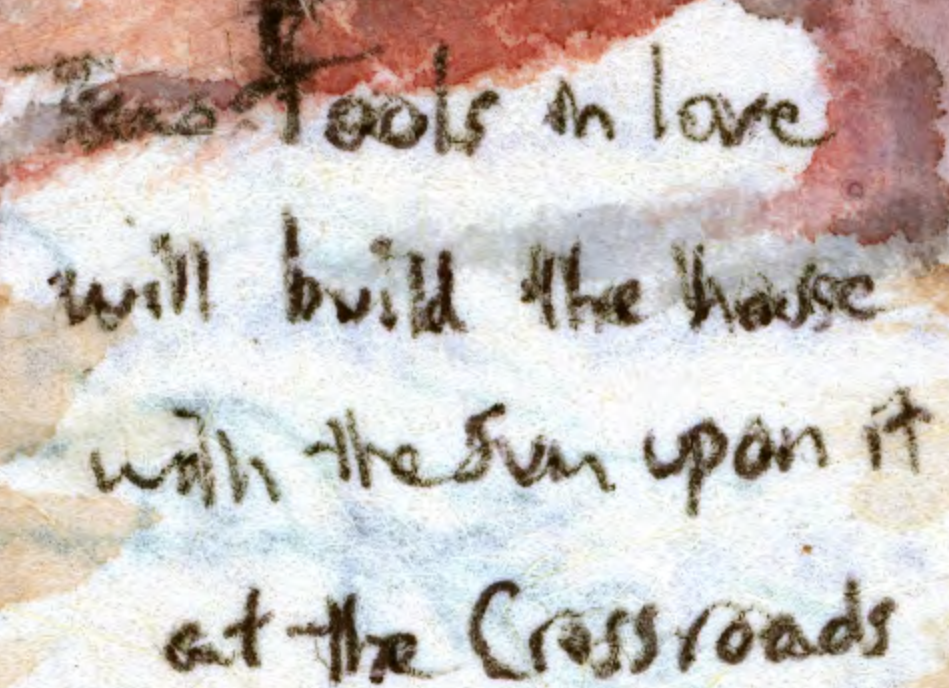 fools in love
will build the house
with the Sun upon it
at the Crossroads